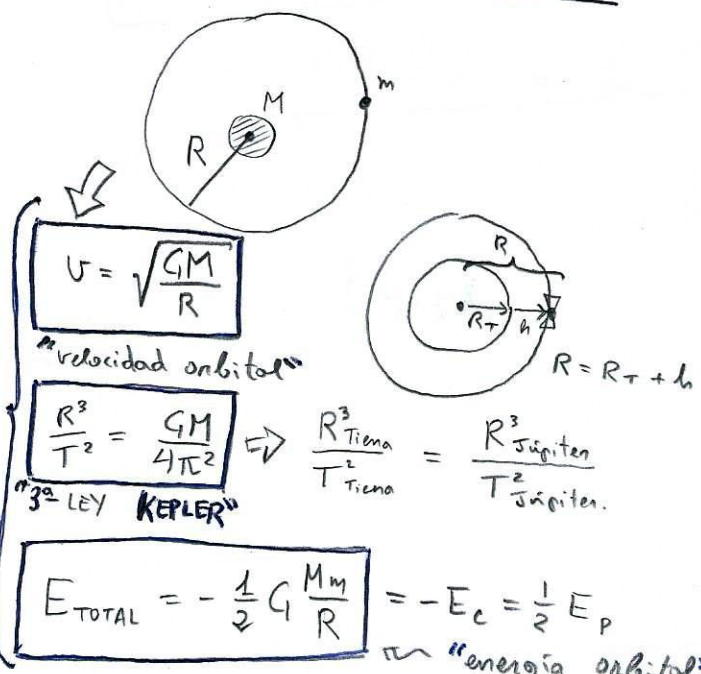 m
M
R
v = √(GM/R)
"velocidad orbital"
R
R_T h
R = R_T + h
R³/T² = GM/4π² ⇒ R³_Tierra/T²_Tierra = R³_Júpiter/T²_Júpiter.
"3ª LEY KEPLER"
E_TOTAL = - 1/2 G Mm/R = - E_c = 1/2 E_p
"energía orbital"